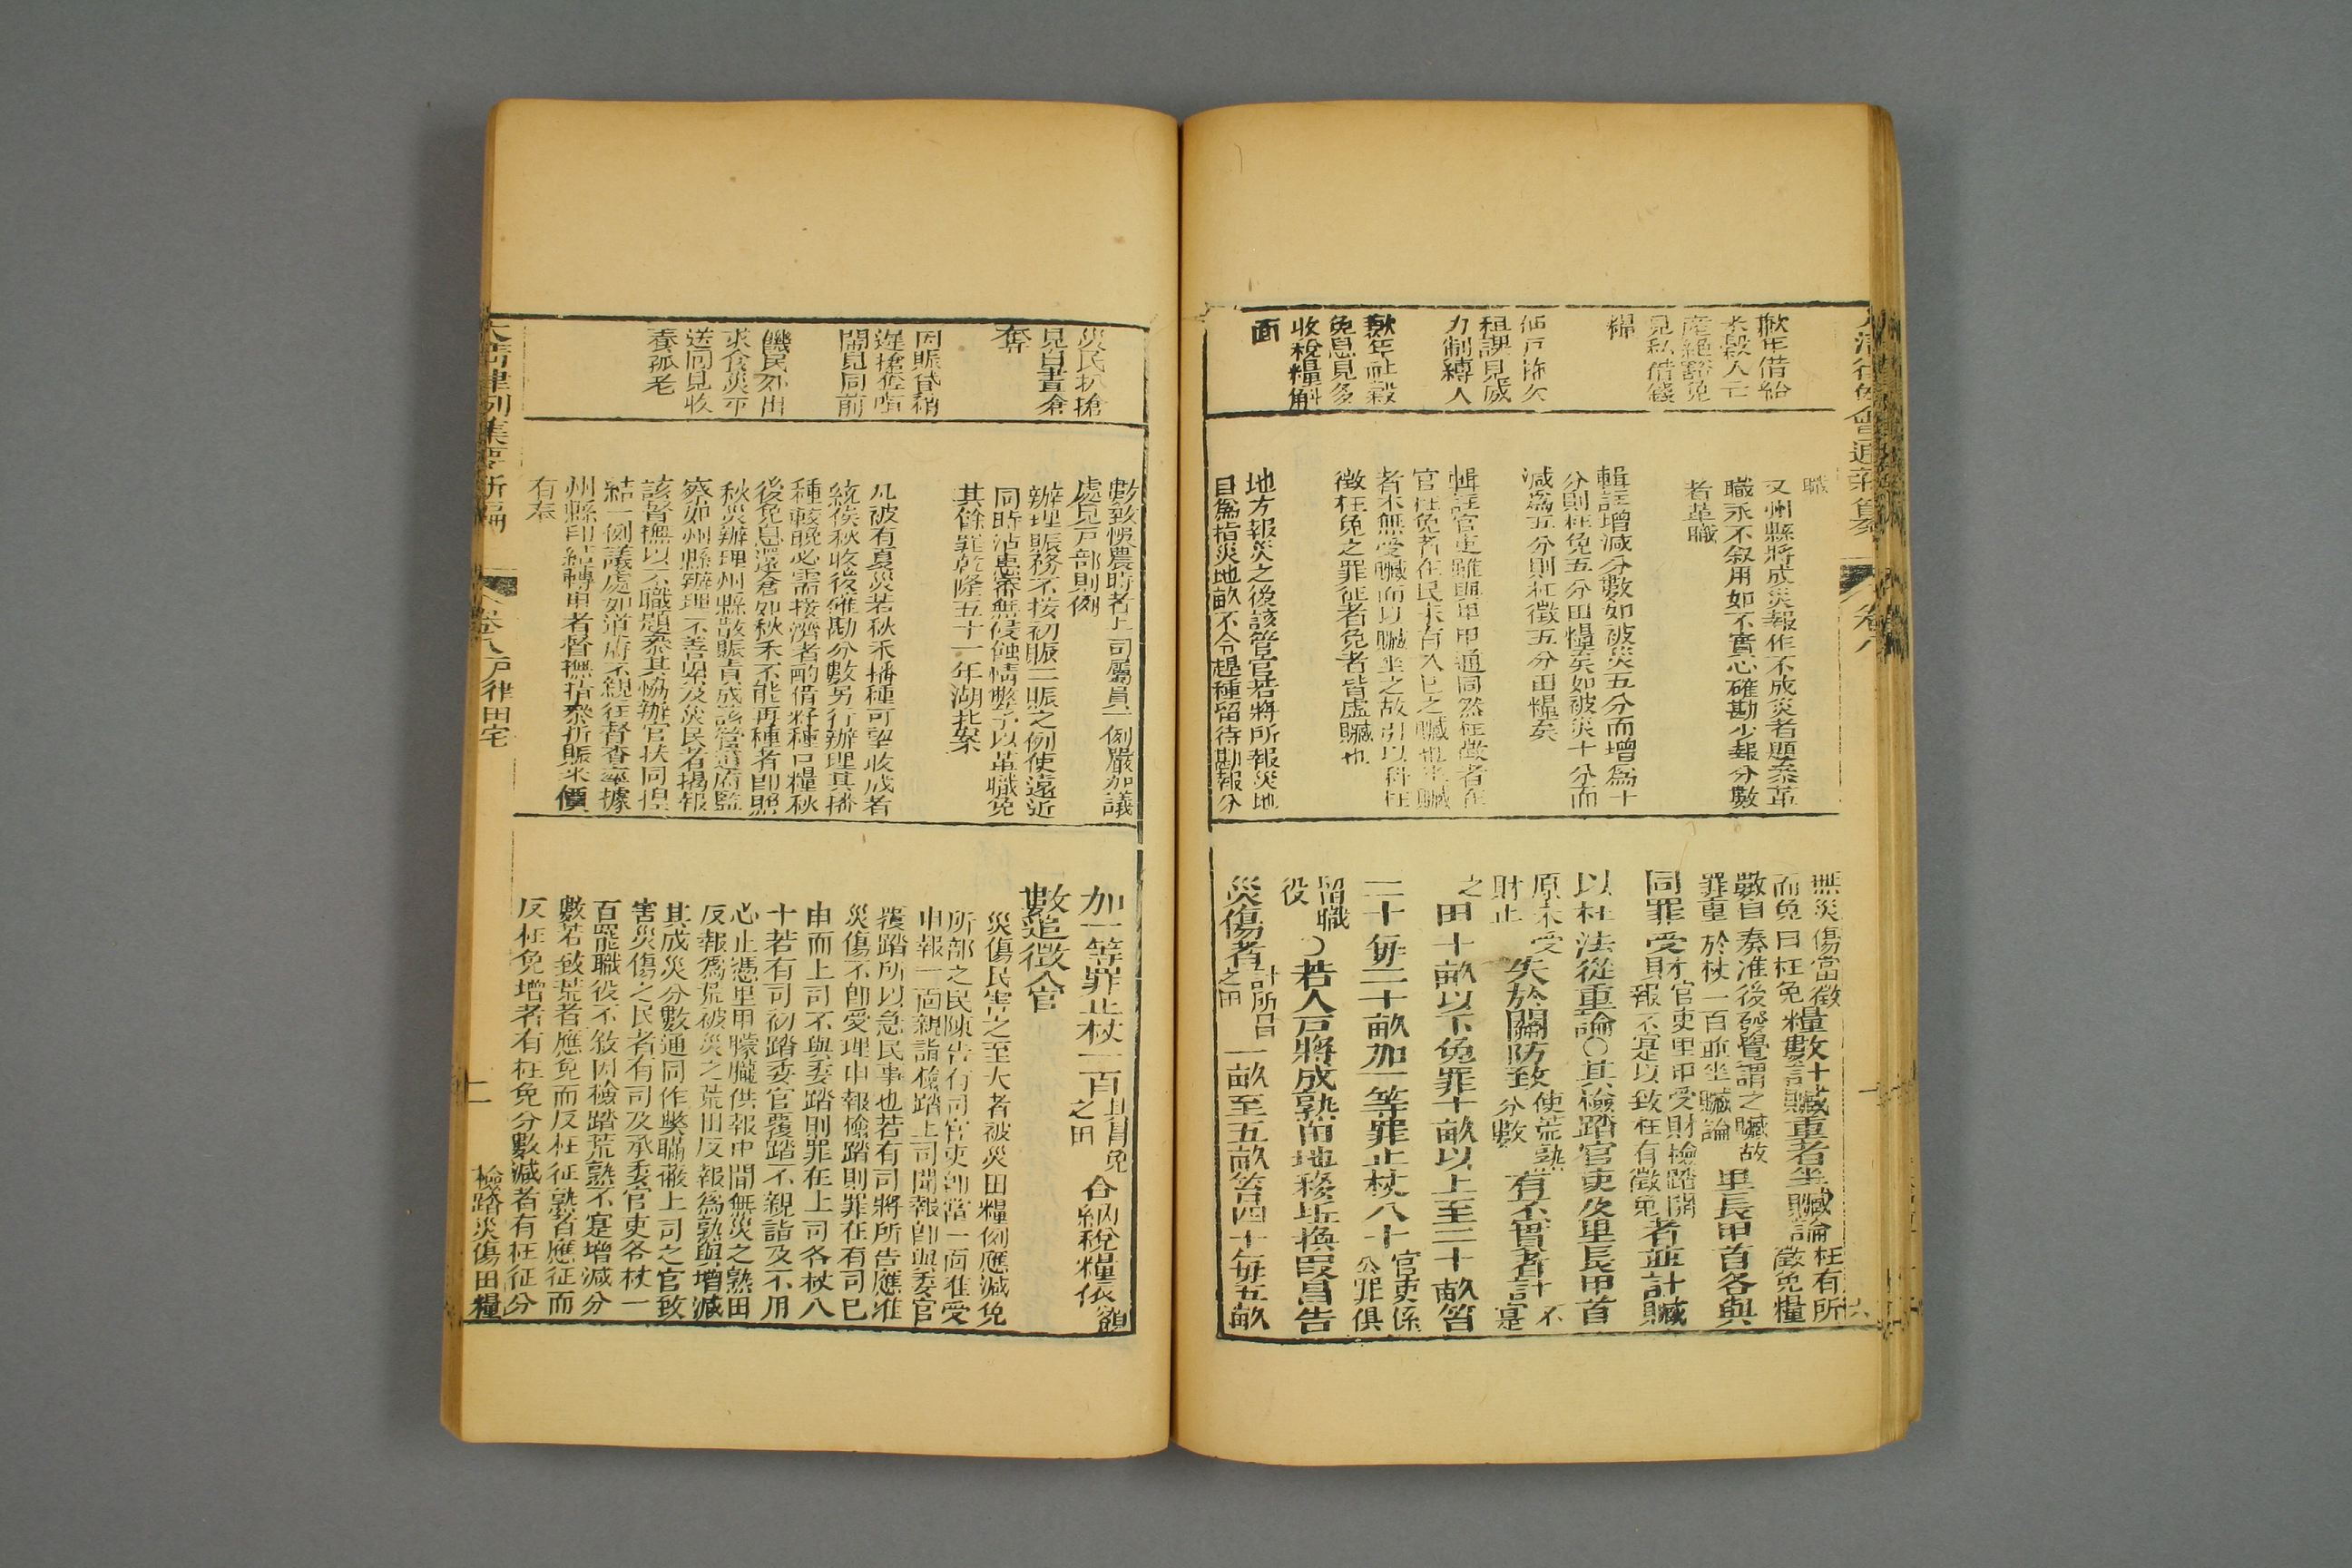 歉年借給
米穀人亡
產絕豁免
見私借錢
糧
佃戶拖欠
租課見威
力制縛人
歉年社穀
免息見多
收稅糧斛
面
職
又州縣將成災報作不成災者題叅革
職永不叙用如不實心確勘少報分數
者革職
輯註增減分數如被災五分而增爲十
分則枉免五分田糧矣如被災十分而
減爲五分則枉徵五分田糧矣
輯註官吏雖與里甲通同然枉徵者在
官枉免者在民未有入己之贓也坐贓
者不無受贓而以贓坐之故引以科枉
徵枉免之罪征者免者皆虛贓也
地方報災之後該管官若將所報災地
目爲指災地畝不令趕種留待勘報分
無災傷當徵
而免曰枉免糧數計贓重者坐贓論枉有所
徵免糧
數自奏准後發覺謂之贓故
罪重於杖一百並坐贓論里長甲首各與
同罪受財官吏里甲受財檢踏開
報不寔以致枉有徵免者並計贓
以枉法從重論○其檢踏官吏及里長甲首
原未受
財止失於關防致使荒熟
分數有不實者計不
寔
之田十畝以下免罪十畝以上至二十畝笞
二十每二十畝加一等罪止杖八十官吏係
公罪俱
留職
役○若人戶將成熟田地移坵換段冒告
災傷者計所冒
之田一畝至五畝笞四十每五畝
災民扒搶
見白晝搶
奪
因賑貸稍
遲搶奪喧
鬧見同前
饑民外出
求食災平
送回見收
養孤老
數致悞農時者上司屬員一例嚴加議
處見戶部則例
辦理賑務不按初賑二賑之例使遠近
同時沾惠審無侵蝕情弊予以革職免
其餘罪乾隆五十一年湖北案
凡被有夏災若秋禾播種可望收成者
統俟秋收後確勘分數另行辦理其播
種較晚必需接濟者酌借籽種口糧秋
後免息還倉如秋禾不能再種者卽照
秋災辦理州縣散賑責成該管道府監
察如州縣辦理不善以及災民者揭報
該督撫以不職題叅其協辦官扶同捏
結一例議處如道府不親往督查率據
州縣印結轉申者督撫指叅折賑米價
有奉
加一等罪止杖一百其冒免
之田合納稅糧依額
數追徵入官
災傷民害之至大者被災田糧例應減免
所部之民陳告有司官吏卽當一面准受
申報一面親詣檢踏上司聞報卽與委官
覆踏所以急民事也若有司將所告應准
災傷不卽受理申報檢踏則罪在有司已
申而上司不與委踏則罪在上司各杖八
十若有司初踏委官覆踏不親詣及不用
心止憑里甲朦朧供報中間無災之熟田
反報爲荒被災之荒田反報爲熟與增減
其成災分數通同作獘瞞蔽上司之官致
害災傷之民者有司及承委官吏各杖一
百罷職役不敘因檢踏荒熟不寔增減分
數若致荒者應免而反枉征熟者應征而
反枉免增者有枉免分數減者有枉征分
檢踏災傷田糧
大清律例集要新編
卷八戶律田宅
二